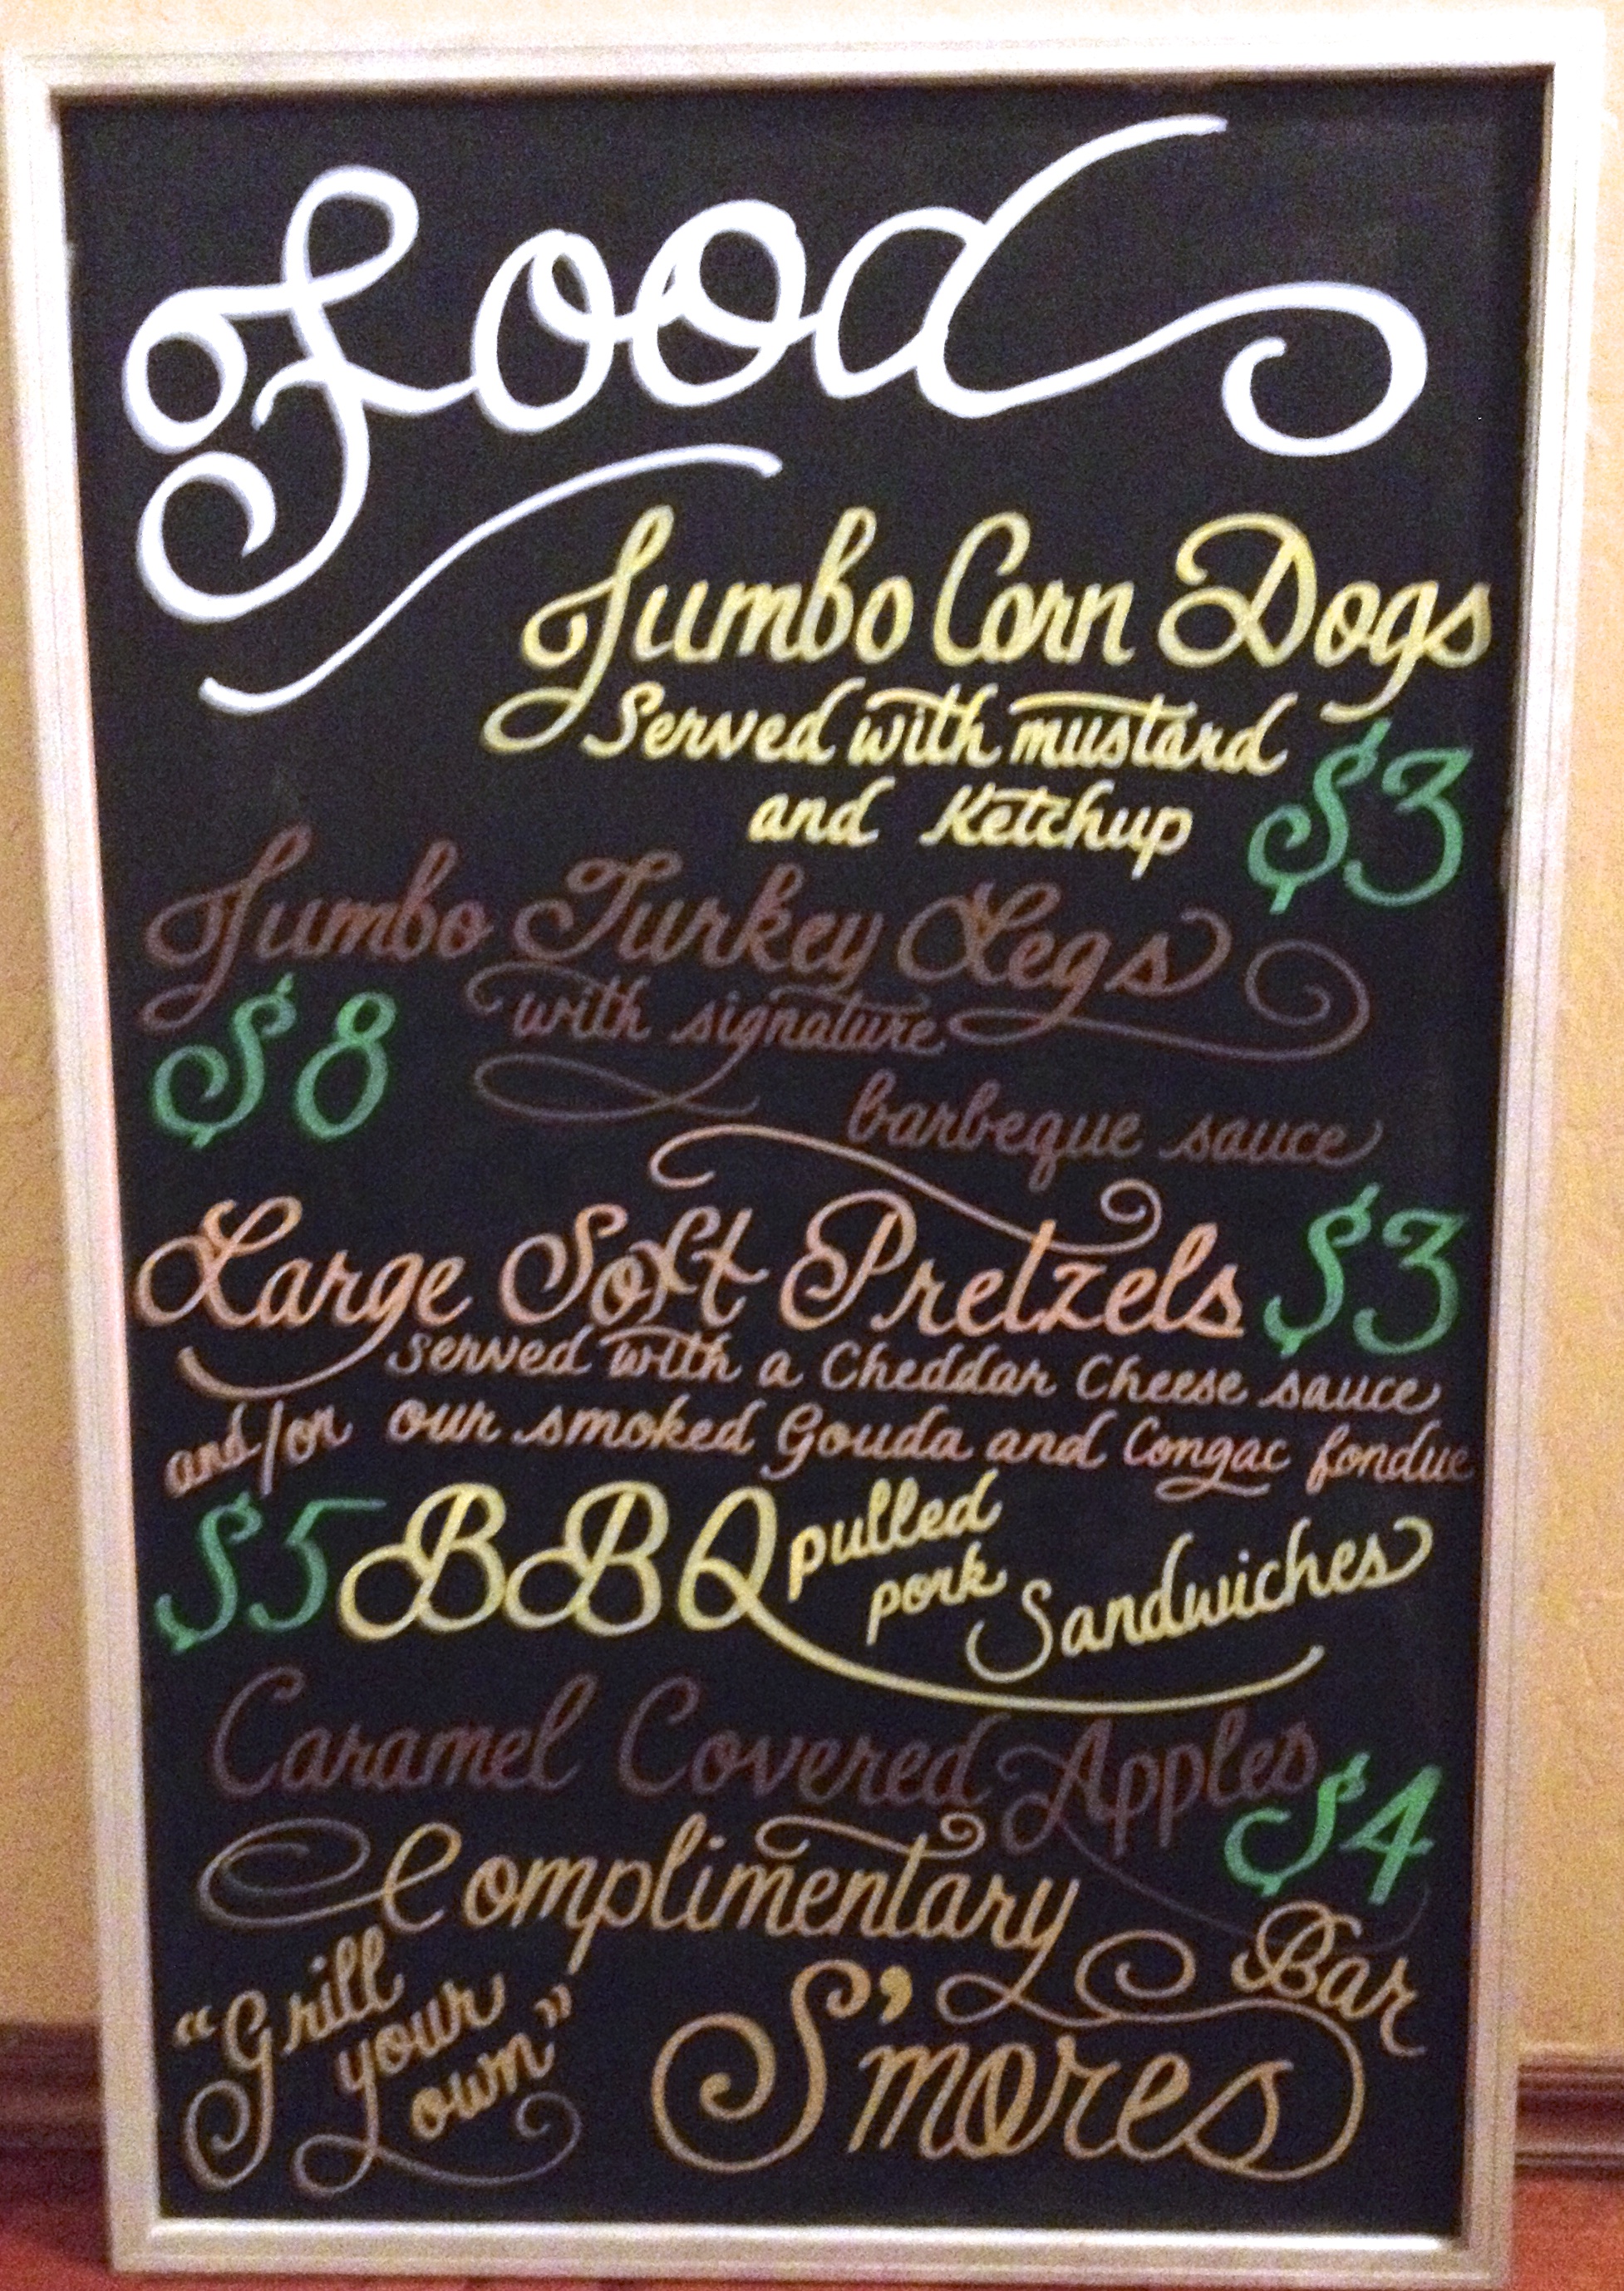 Food
Jumbo Corn Dogs
Served with mustard
and Ketchup $3
Jumbo Turkey Legs
$8 with signature
barbeque sauce
Large Soft Pretzels $3
served with a Cheddar Cheese sauce
and/or our smoked Gouda and Congac fondue
$5 BBQ pulled
pork Sandwiches
Caramel Covered Apples
$4
Complimentary
"Grill
your
own"
S'mores
Bar